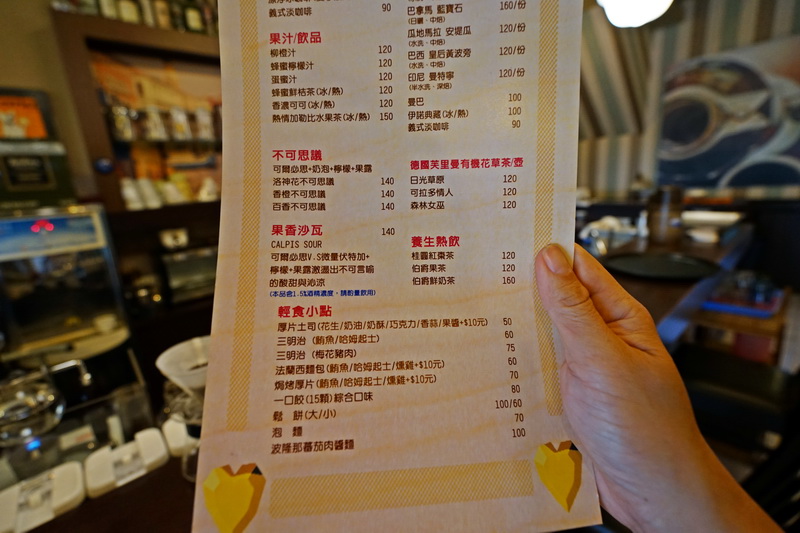 義式淡咖啡 90
果汁/飲品
柳橙汁 120
蜂蜜檸檬汁 120
蛋蜜汁 120
蜂蜜鮮桔茶(冰/熱) 120
香濃可可(冰/熱) 120
熱情加勒比水果茶(冰/熱) 150
不可思議
可爾必思+奶泡+檸檬+果露
洛神花不可思議 140
香橙不可思議 140
百香不可思議 140
果香沙瓦 140
CALPIS SOUR
可爾必思V.S微量伏特加+
檸檬+果露激盪出不可言喻
的酸甜與沁涼
(本品含1.5%酒精濃度，請酌量飲用)
巴拿馬 藍寶石 160/份
(日曬、中焙)
瓜地馬拉 安堤瓜 120/份
(水洗、中焙)
巴西 皇后黃波旁 120/份
(水洗、中焙)
印尼 曼特寧 120/份
(半水洗、深焙)
曼巴 100
伊諾典藏(冰/熱) 100
義式淡咖啡 90
德國芙里曼有機花草茶/壺
日光草原 120
可拉多情人 120
森林女巫 120
養生熱飲
桂圓紅棗茶 120
伯爵果茶 120
伯爵鮮奶茶 160
輕食小點
厚片土司(花生/奶油/奶酥/巧克力/香蒜/果醬+$10元) 50
三明治 (鮪魚/哈姆起士) 60
三明治 (梅花豬肉) 75
法蘭西麵包(鮪魚/哈姆起士/燻雞+$10元) 60
焗烤厚片(鮪魚/哈姆起士/燻雞+$10元) 70
一口餃(15顆)綜合口味 80
鬆 餅(大/小) 100/60
泡 麵 70
波隆那蕃茄肉醬麵 100